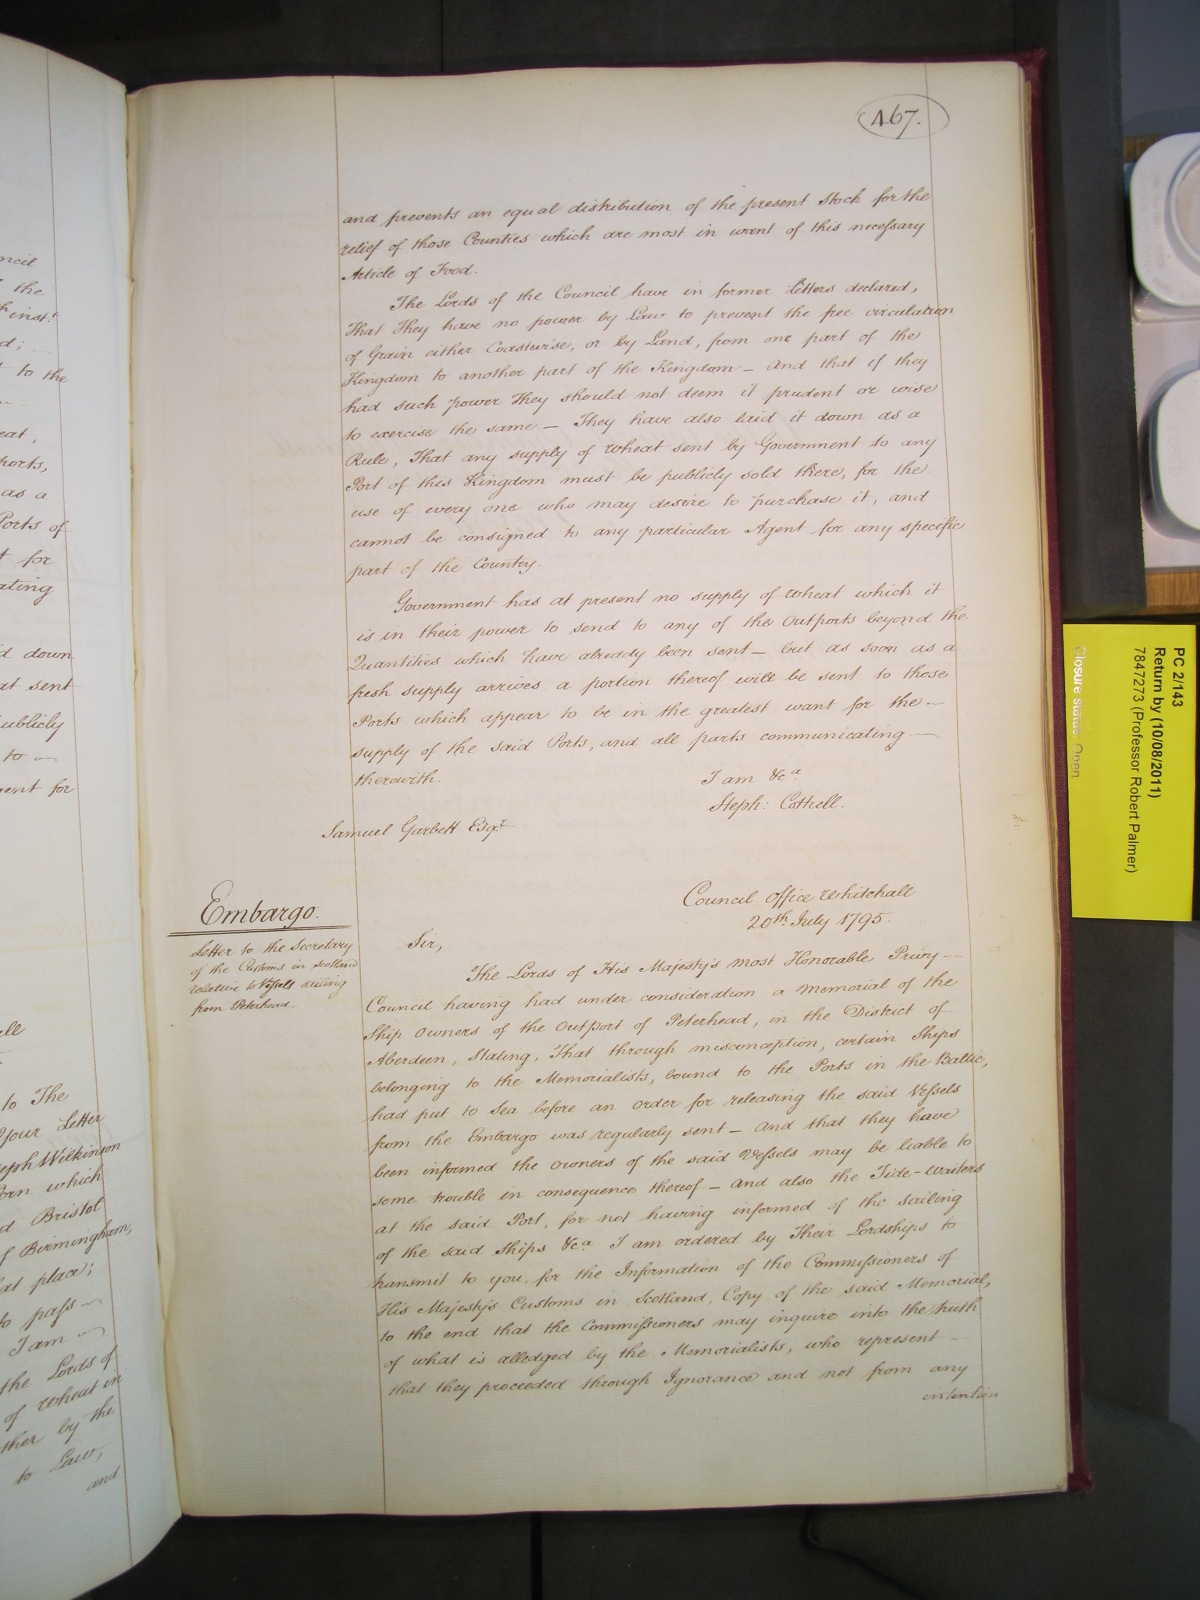 ncil
the
inst!
d;
to the
eat,
ports,
as a
Ports of
t for
ating
d down
at sent
ublicly
to
ent for
ell
to The
Your Letter
seph Wilkinson
Corn which
d Bristol
f Birmingham,
at place;
to pass
I am
the Lords of
of Wheat in
ther by the
to Law,
and
467.
and prevents an equal distribution of the present Stock for the
relief of those Counties which are most in want of this necessary
Article of Food.
The Lords of the Council have in former Letters declared,
That They have no power by Law to prevent the free circulation
of Grain either Coastwise, or by Land, from one part of the
Kingdom to another part of the Kingdom – And that if they
had such power They should not deem it prudent or wise
to exercise the same – They have also laid it down as a
Rule, That any supply of Wheat sent by Government to any
Port of this Kingdom must be publicly sold there, for the
use of every one who may desire to purchase it, and
cannot be consigned to any particular Agent for any specific
part of the Country.
Government has at present no supply of Wheat which it
is in their power to send to any of the Outports beyond the
Quantities which have already been sent – but as soon as a
fresh supply arrives a portion thereof will be sent to those
Ports which appear to be in the greatest want for the –
supply of the said Ports, and all parts communicating –
therewith.
I am &ca
Steph: Cottrell.
Samuel Garbett Esqr.
Embargo.
Letter to the Secretary
of the Customs in Scotland
relative to Vessels sailing
from Peterhead.
Council Office Whitehall
20th July 1795.
Sir,
The Lords of His Majesty's most Honorable Privy –
Council having had under consideration a Memorial of the
Ship Owners of the Outport of Peterhead, in the District of
Aberdeen, Stating, That through misconception, certain Ships
belonging to the Memorialists, bound to the Ports in the Baltic,
had put to Sea before an Order for releasing the said Vessels
from the Embargo was regularly sent – And that they have
been informed the Owners of the said Vessels may be liable to
some trouble in consequence thereof – and also the Tide-Waiters
at the said Port, for not having informed of the sailing
of the said Ships &ca I am ordered by Their Lordships to
transmit to you, for the Information of the Commissioners of
His Majesty's Customs in Scotland, Copy of the said Memorial,
to the end that the Commissioners may inquire into the truth
of what is alledged by the Memorialists, who represent –
that they proceeded through Ignorance and not from any
intention
PC 2/143
Return by (10/08/2011)
7847273 (Professor Robert Palmer)
Closure status: Open